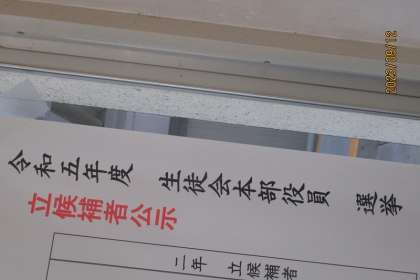 令和五年度 生徒会本部役員 選挙
立候補者公示
立候補者
二年
2023/09/12